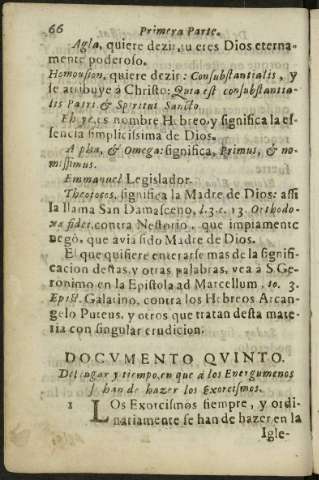 66 Primera Parte.
Agla, quiere dezir, tu eres Dios eterna-
mente poderoso.
Homousion, quiere dezir: Consubstantialis, y
se atribuye à Christo: Quia est consubstantia-
lis Patri & Spiritui Sancto.
Ehye, es nombre Hebreo, y significa la es-
sencia simplicissima de Dios.
Alpha, & Omega: significa, Primus, & no-
uissimus.
Emmanuel Legislador.
Theotocos, significa la Madre de Dios: assi
la llama San Damasceno, l. 3. c. 13. Orthodo-
xæ fidei, contra Nestorio, que impiamente
negò, que avia sido Madre de Dios.
El que quisiere enterarse mas de la signifi-
cacion destas, y otras palabras, vea à S. Ge-
ronimo en la Epistola ad Marcellum, to. 3.
Epist. Galatino, contra los Hebreos Arcan-
gelo Puteus, y otros que tratan desta mate-
ria con singular erudicion.
DOCVMENTO QVINTO.
Del lugar y tiempo, en que à los Energumenos
se han de hazer los Exorcismos.
1 LOs Exorcismos siempre, y ordi-
nariamente se han de hazer en la
Igle-